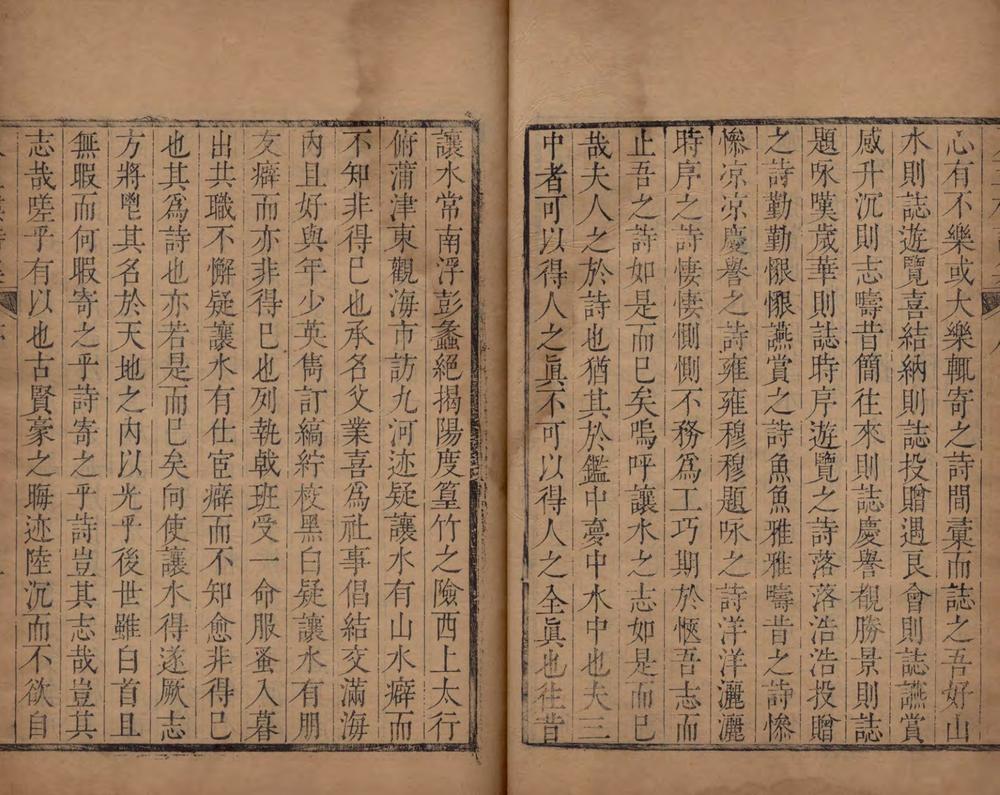 心有不樂或大樂輒寄之詩間彙而誌之吾好山
水則誌遊覽喜結納則誌投贈遇良會則誌讌賞
感升沉則志疇昔簡往來則誌慶譽覩勝景則誌
題咏嘆歲華則誌時序遊覽之詩落落浩浩投贈
之詩勤勤懇懇讌賞之詩魚魚雅雅疇昔之詩慘
慘凉凉慶譽之詩雍雍穆穆題咏之詩洋洋灑灑
時序之詩悽悽惻惻不務爲工巧期於愜吾志而
止吾之詩如是而已矣嗚呼讓水之志如是而已
哉夫人之於詩也猶其於鑑中夣中水中也夫三
中者可以得人之眞不可以得人之全眞也徃昔
讓水常南浮彭蠡絕揭陽度篁竹之險西上太行
俯蒲津東觀海市訪九河迹疑讓水有山水癖而
不知非得已也承名父業喜爲社事倡結交滿海
內且好與年少英雋訂縞紵校黑白疑讓水有朋
友癖而亦非得已也列執戟班受一命服蚤入暮
出共職不懈疑讓水有仕宦癖而不知愈非得已
也其爲詩也亦若是而已矣向使讓水得遂厥志
方將鬯其名於天地之內以光乎後世雖白首且
無暇而何暇寄之乎詩寄之乎詩豈其志哉豈其
志哉嗟乎有以也古賢豪之晦迹陸沉而不欲自